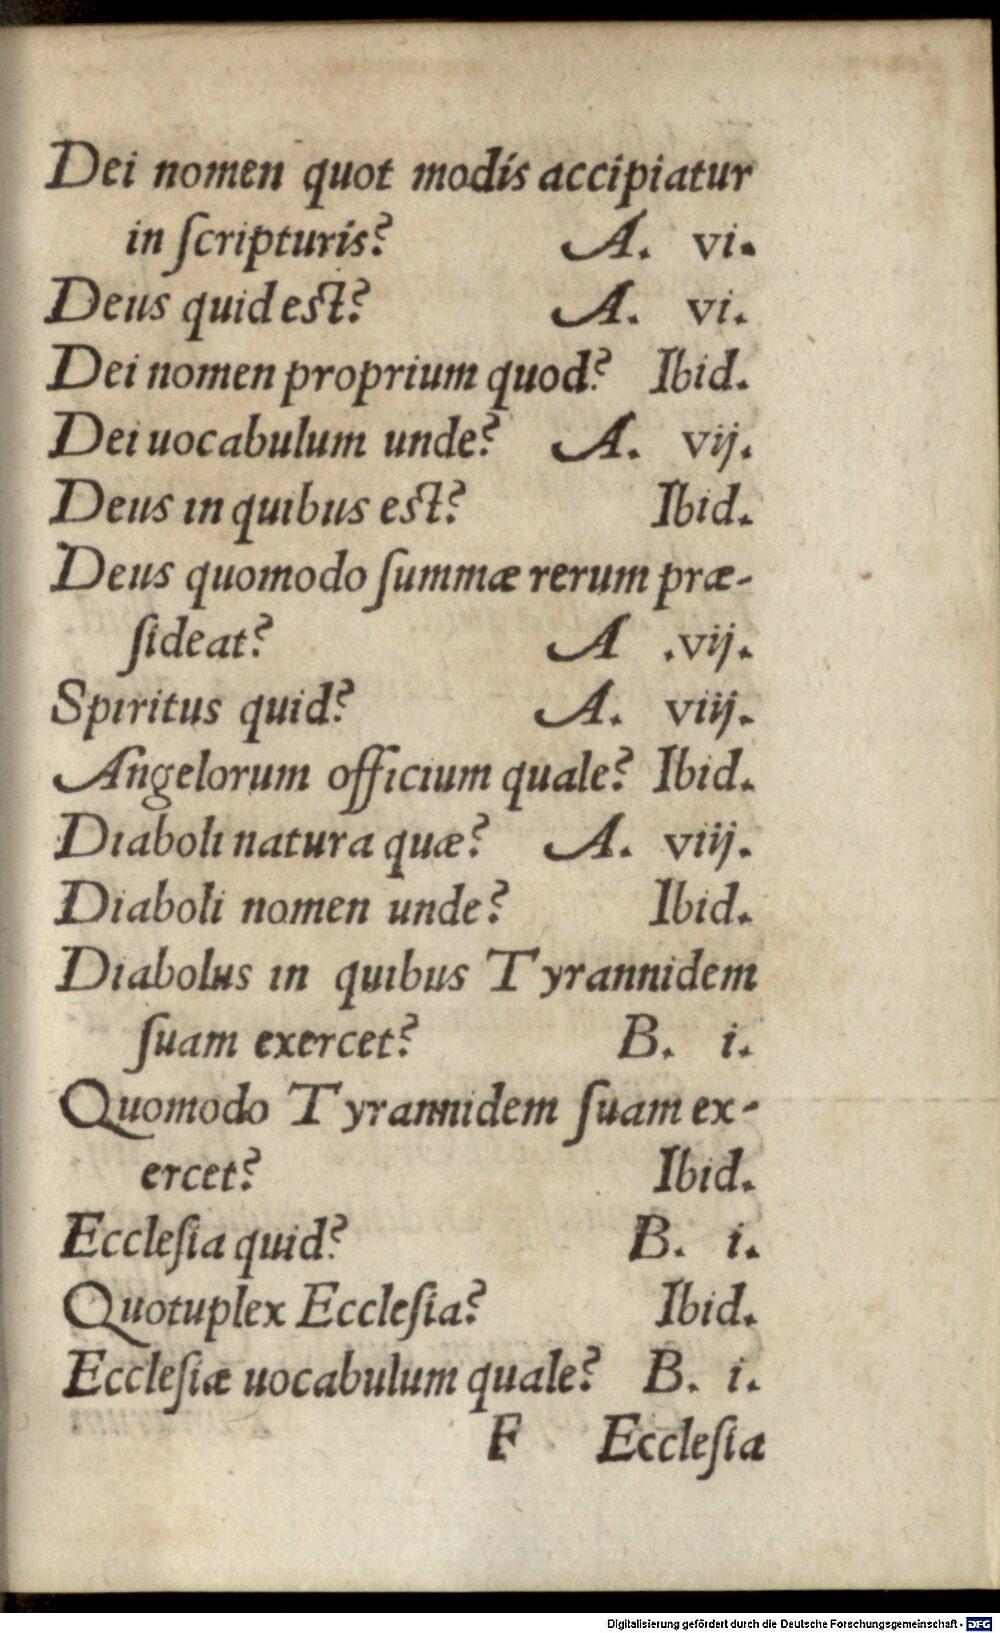 Dei nomen quot modis accipiatur
in ſcripturis? A. vi.
Deus quid est? A. vi.
Dei nomen proprium quod? Ibid.
Dei uocabulum unde? A. vij.
Deus in quibus est? Ibid.
Deus quomodo ſummæ rerum præ-
ſideat? A .vij.
Spiritus quid? A. viij.
Angelorum officium quale? Ibid.
Diaboli natura quæ? A. viij.
Diaboli nomen unde? Ibid.
Diabolus in quibus Tyrannidem
ſuam exercet? B. i.
Quomodo Tyrannidem ſuam ex-
ercet? Ibid.
Eccleſia quid? B. i.
Quotuplex Eccleſia? Ibid.
Eccleſiæ uocabulum quale? B. i.
F Eccleſia
Digitalisierung gefördert durch die Deutsche Forschungsgemeinschaft - DFG